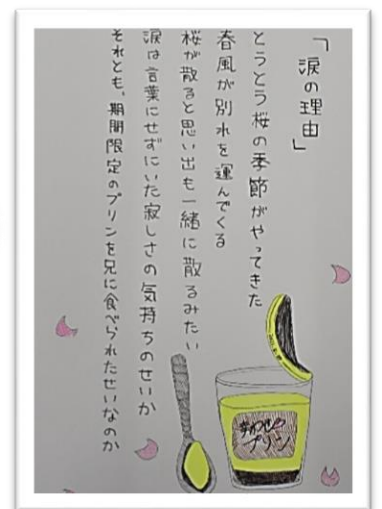 「涙の理由」
とうとう桜の季節がやってきた
春風が別れを運んでくる
桜が散ると思い出も一緒に散るみたい
涙は言葉にせずにいた寂しさの気持ちのせいか
それとも、期間限定のプリンを兄に食べられたせいなのか
プリン